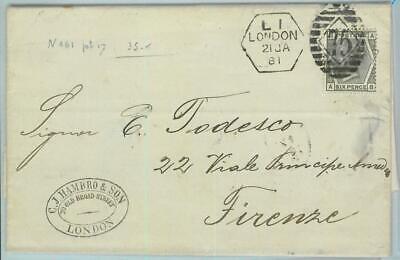 N 161 pl 17 35.-
L 1
LONDON
21 JA
81
A SIX PENCE B
Signor E. Todesco
22 Viale Principe Amedeo
Firenze
C. J. HAMBRO & SON
70 OLD BROAD STREET
LONDON